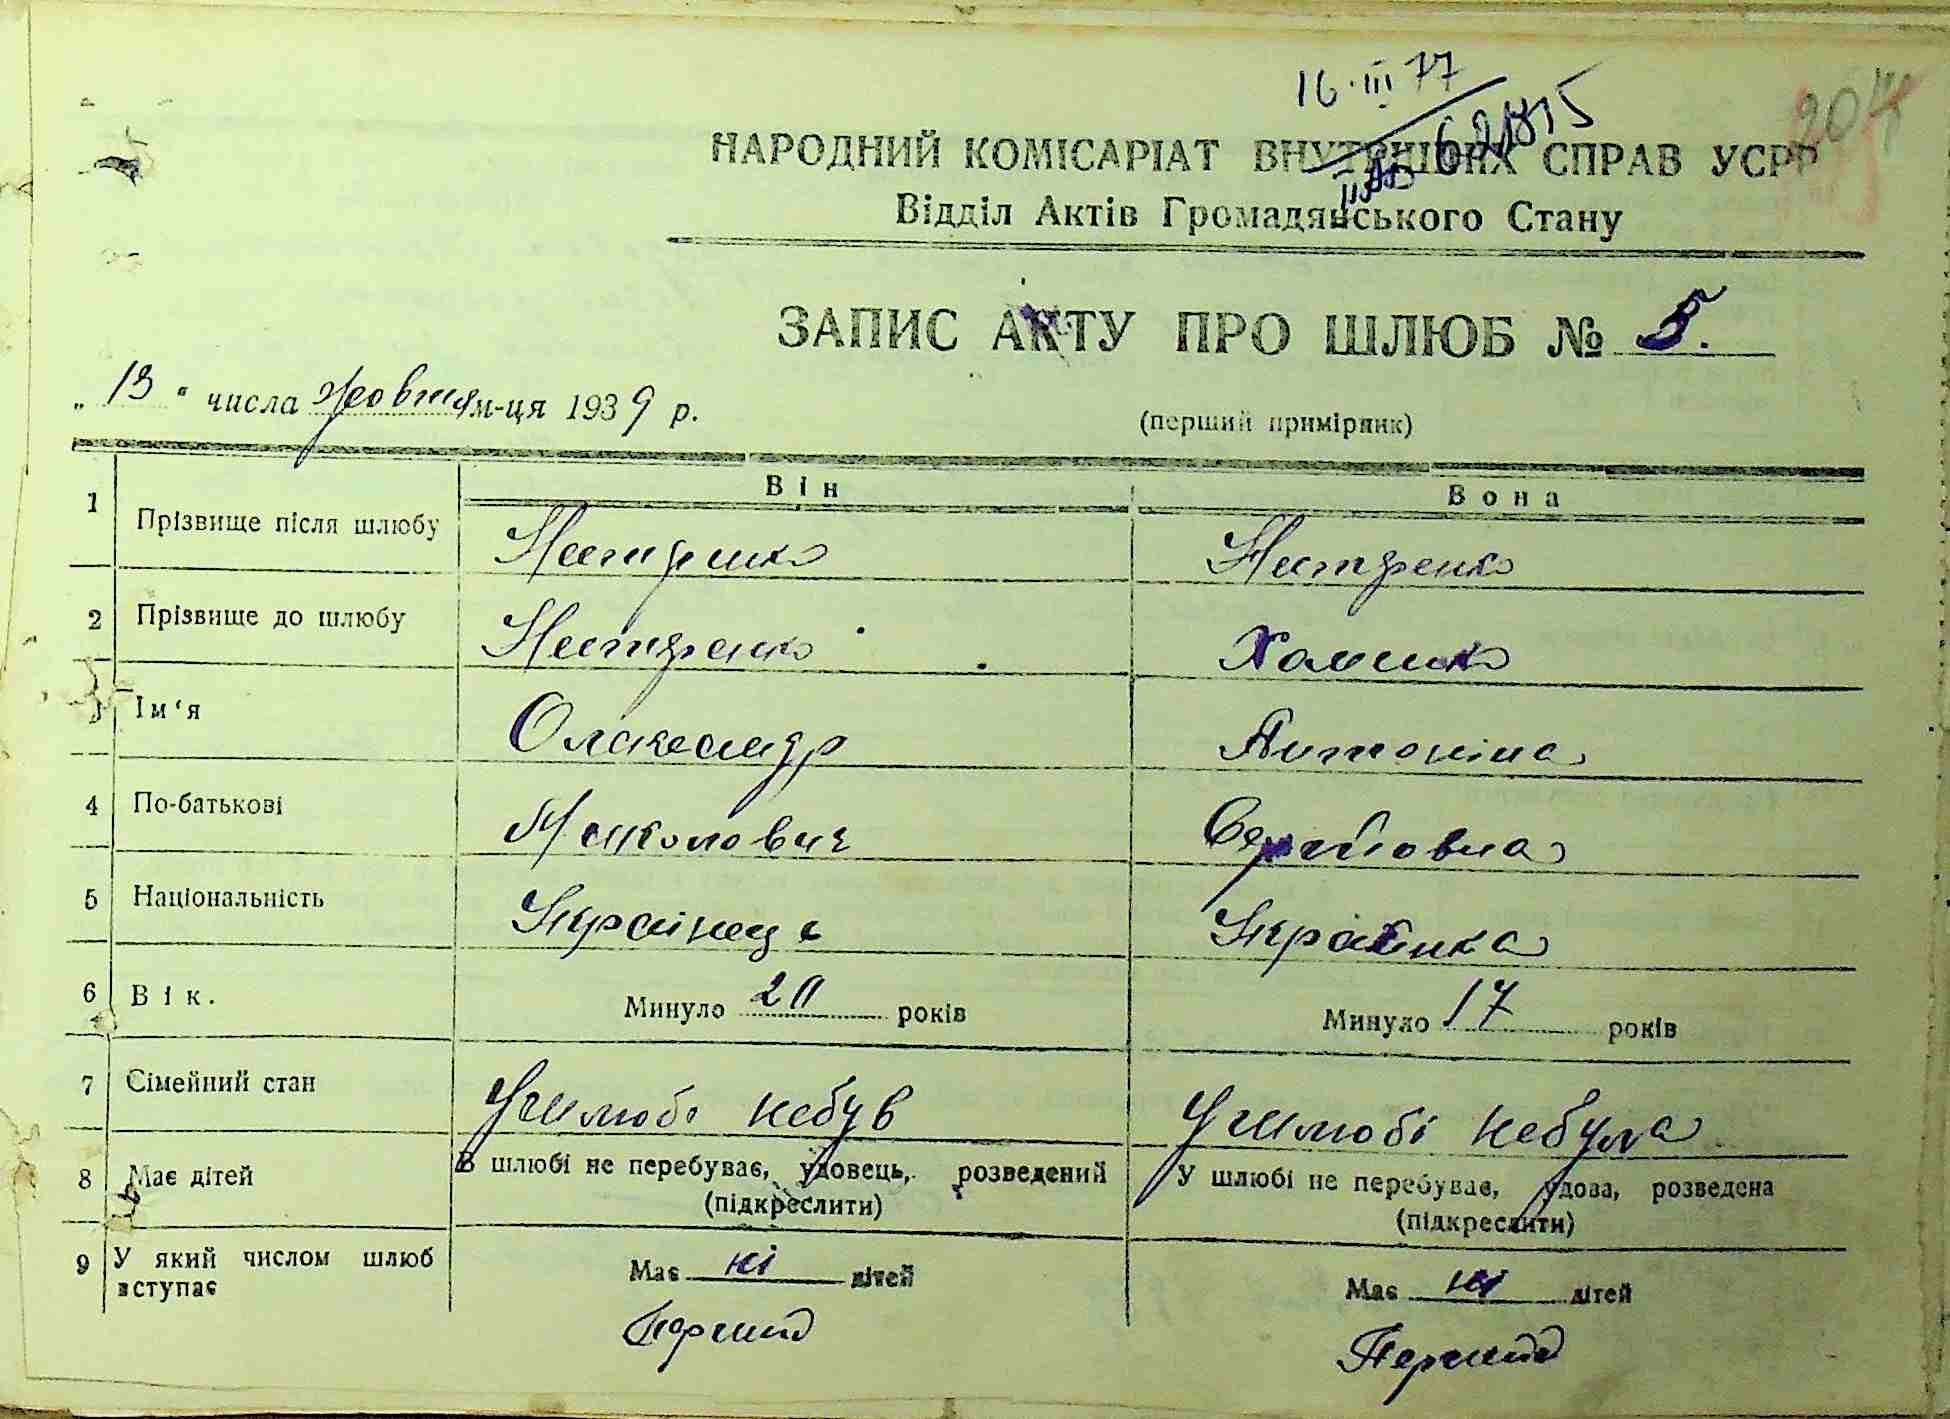 16·III 77
204
НАРОДНИЙ КОМІСАРІАТ ВНУТРІШНІХ СПРАВ УСРР
Відділ Актів Громадянського Стану
ЗАПИС АКТУ ПРО ШЛЮБ № 5.
„ 13 " числа жовтня м-ця 1939 р.
(перший примірник)
Він Вона
1 Прізвище після шлюбу Нестеренко Нестеренко
2 Прізвище до шлюбу Нестеренко Хоменко
3 Ім'я Олександр Антоніна
4 По-батькові Миколович Сергіовна
5 Національність Українець Українка
6 Вік. Минуло 20 років Минуло 17 років
7 Сімейний стан Ушлюбі небув Ушлюбі небула
8 Має дітей В шлюбі не перебуває, удовець, розведений У шлюбі не перебуває, удова, розведена
(підкреслити) (підкреслити)
9 У який числом шлюб Має ні дітей Має ні дітей
вступає Перший Перший